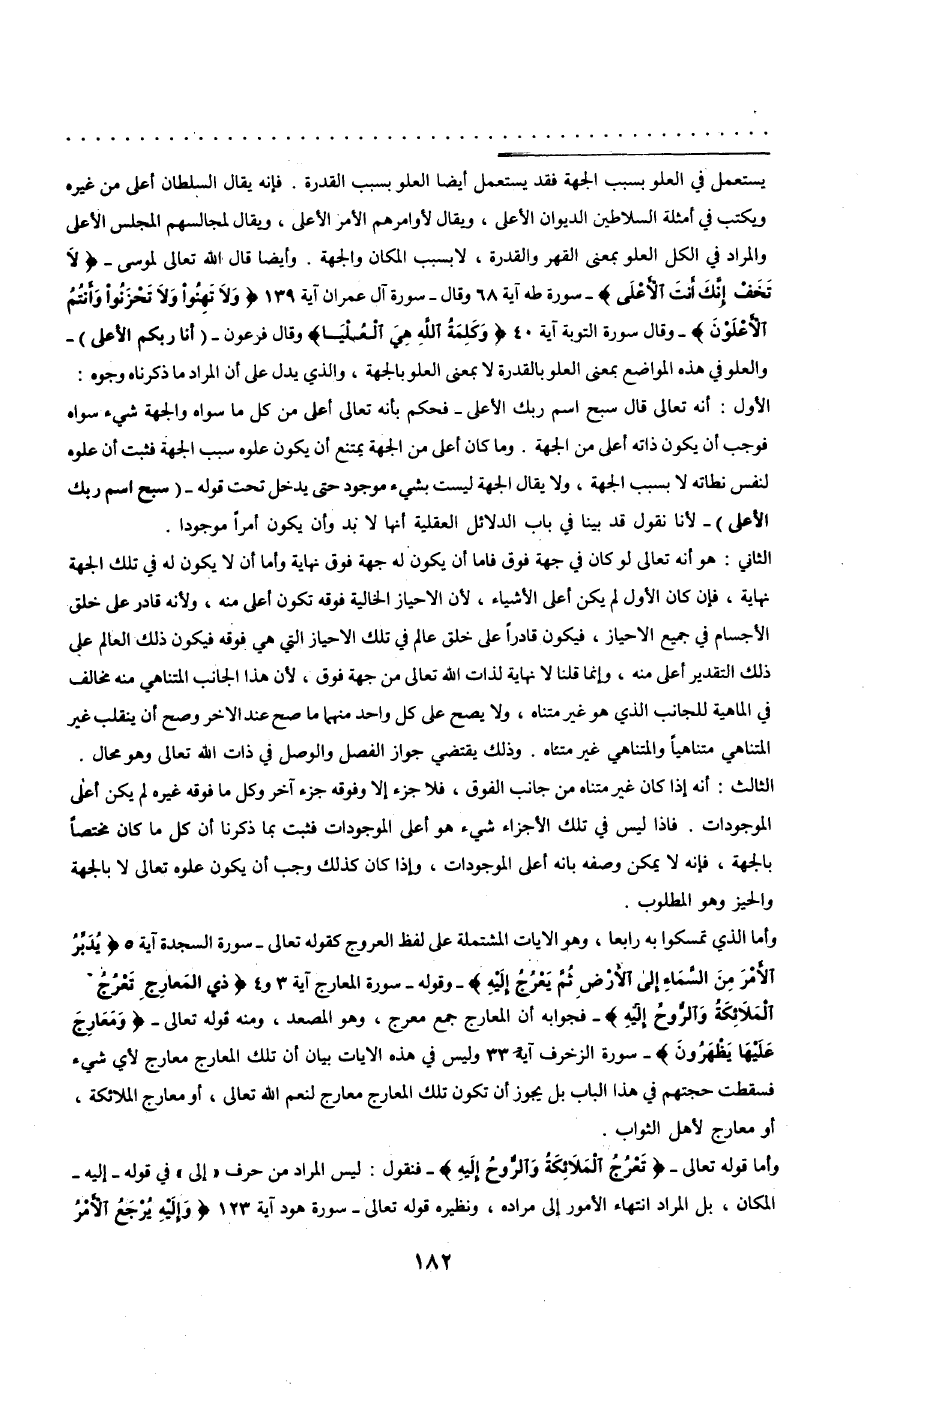 يستعمل في العلو بسبب الجهة فقد يستعمل أيضا العلو بسبب القدرة . فإنه يقال السلطان أعلى من غيره
ويكتب في أمثلة السلاطين الديوان الأعلى ، ويقال لأوامرهم الأمر الأعلى ، ويقال لمجالسهم المجلس الأعلى
والمراد في الكل العلو بمعنى القهر والقدرة ، لابسبب المكان والجهة . وأيضا قال الله تعالى لموسى ـ ﴿ لاَ
تَخَفْ إِنَّكَ أَنتَ ٱلْأَعْلَى ﴾ ـ سورة طه آية ٦٨ وقال ـ سورة آل عمران آية ١٣٩ ﴿ وَلاَ تَهِنُواْ وَلاَ تَحْزَنُواْ وَأَنتُمُ
ٱلْأَعْلَوْنَ ﴾ ـ وقال سورة التوبة آية ٤٠ ﴿ وَكَلِمَةُ ٱللَّهِ هِيَ ٱلْعُلْيَا ﴾ وقال فرعون ـ ( أنا ربكم الأعلى ) ـ
والعلو في هذه المواضع بمعنى العلو بالقدرة لا بمعنى العلو بالجهة ، والذي يدل على أن المراد ما ذكرناه وجوه :
الأول : أنه تعالى قال سبح اسم ربك الأعلى ـ فحكم بأنه تعالى أعلى من كل ما سواه والجهة شيء سواه
فوجب أن يكون ذاته أعلى من الجهة . وما كان أعلى من الجهة يمتنع أن يكون علوه سبب الجهة فثبت أن علوه
لنفس نطاته لا بسبب الجهة ، ولا يقال الجهة ليست بشيء موجود حتى يدخل تحت قوله ـ ( سبح اسم ربك
الأعلى ) ـ لأنا نقول قد بينا في باب الدلائل العقلية أنها لا بد وأن يكون أمراً موجودا .
الثاني : هو أنه تعالى لو كان في جهة فوق فاما أن يكون له جهة فوق نهاية وأما أن لا يكون له في تلك الجهة
نهاية ، فإن كان الأول لم يكن أعلى الأشياء ، لأن الاحياز الخالية فوقه تكون أعلى منه ، ولأنه قادر على خلق
الأجسام في جميع الاحياز ، فيكون قادراً على خلق عالم في تلك الاحياز التي هي فوقه فيكون ذلك العالم على
ذلك التقدير أعلى منه ، وإنما قلنا لا نهاية لذات الله تعالى من جهة فوق ، لأن هذا الجانب المتناهي منه مخالف
في الماهية للجانب الذي هو غير متناه ، ولا يصح على كل واحد منهما ما صح عند الاخر وصح أن ينقلب غير
المتناهي متناهياً والمتناهي غير متناه . وذلك يقتضي جواز الفصل والوصل في ذات الله تعالى وهو محال .
الثالث : أنه إذا كان غير متناه من جانب الفوق ، فلا جزء إلا وفوقه جزء آخر وكل ما فوقه غيره لم يكن أعلى
الموجودات . فاذا ليس في تلك الأجزاء شيء هو أعلى الموجودات فثبت بما ذكرنا أن كل ما كان مختصاً
بالجهة ، فإنه لا يمكن وصفه بانه أعلى الموجودات ، وإذا كان كذلك وجب أن يكون علوه تعالى لا بالجهة
والحيز وهو المطلوب .
وأما الذي تمسكوا به رابعا ، وهو الايات المشتملة على لفظ العروج كقوله تعالى ـ سورة السجدة آية ٥ ﴿ يُدَبِّرُ
ٱلْأَمْرَ مِنَ السَّمَاءِ إِلَى ٱلْأَرْضِ ثُمَّ يَعْرُجُ إِلَيْهِ ﴾ ـ وقوله ـ سورة المعارج آية ٣ و٤ ﴿ ذي المَعارِجِ تَعْرُجُ
ٱلْمَلَائِكَةُ وَٱلرُّوحُ إِلَيْهِ ﴾ ـ فجوابه أن المعارج جمع معرج ، وهو المصعد ، ومنه قوله تعالى ـ ﴿ وَمَعَارِجَ
عَلَيْهَا يَظْهَرُونَ ﴾ ـ سورة الزخرف آية ٣٣ وليس في هذه الايات بيان أن تلك المعارج معارج لأي شيء
فسقطت حجتهم في هذا الباب بل يجوز أن تكون تلك المعارج معارج لنعم الله تعالى ، أو معارج الملائكة ،
أو معارج لأهل الثواب .
وأما قوله تعالى ـ ﴿ تَعْرُجُ ٱلْمَلَائِكَةُ وَٱلرُّوحُ إِلَيهِ ﴾ ـ فنقول : ليس المراد من حرف « إلى » في قوله ـ إليه ـ
المكان ، بل المراد انتهاء الأمور إلى مراده ، ونظيره قوله تعالى ـ سورة هود آية ١٢٣ ﴿ وَإِلَيْهِ يُرْجَعُ ٱلْأَمْرُ
١٨٢